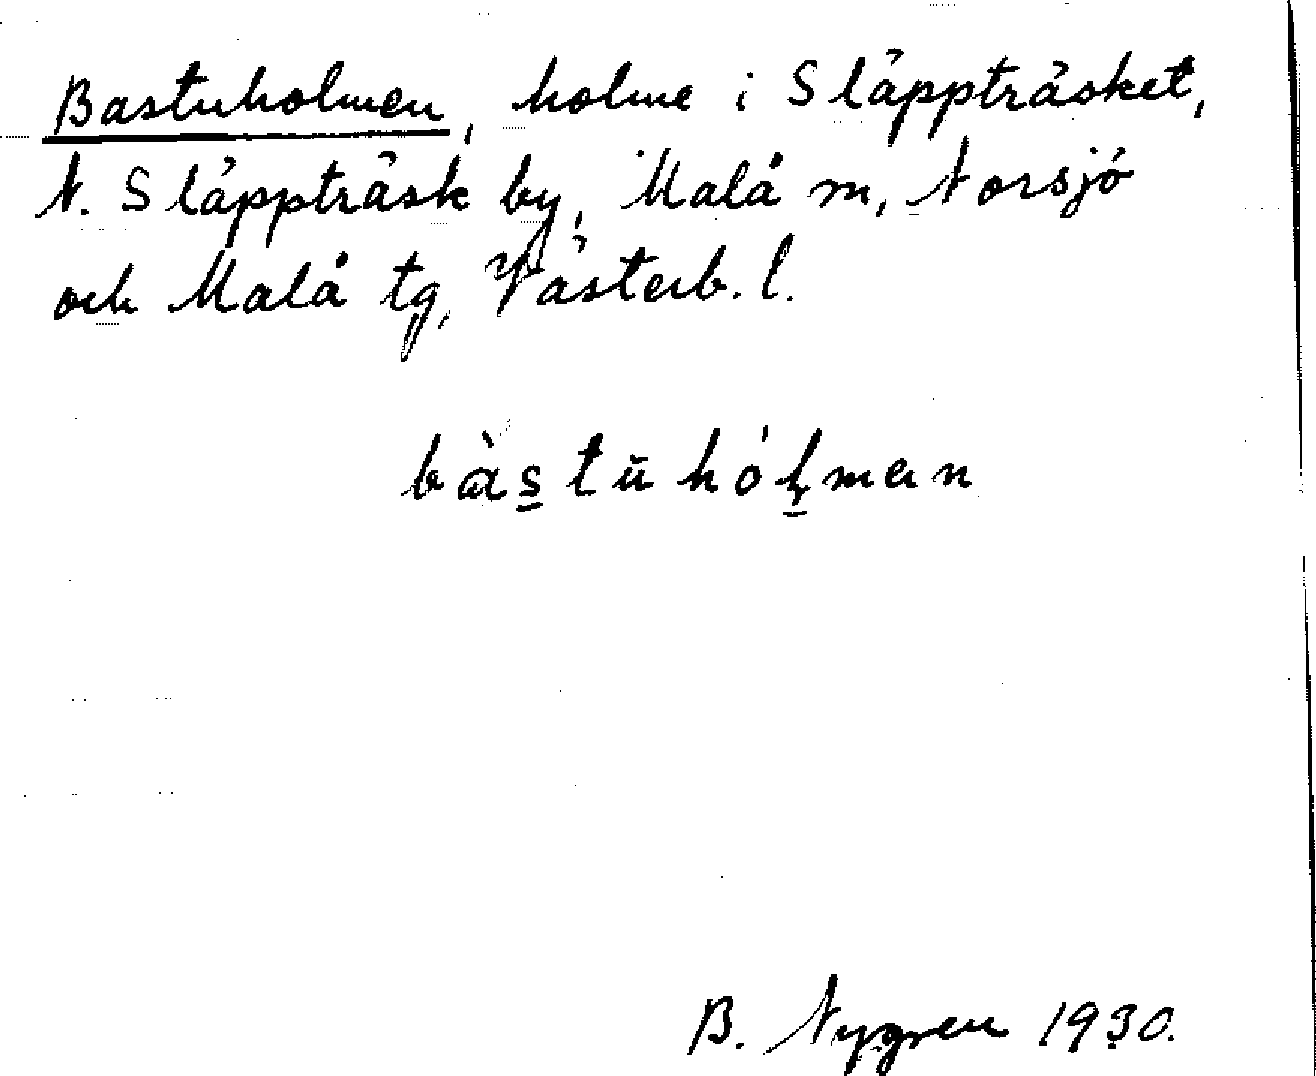 Bastuholmen, holme i Släppträsket,
N. Släppträsk by, Malå m, Norsjö
och Malå tg, Västerb. l.
bàs̲tūhóļ̲men
B. Nygren 1930.